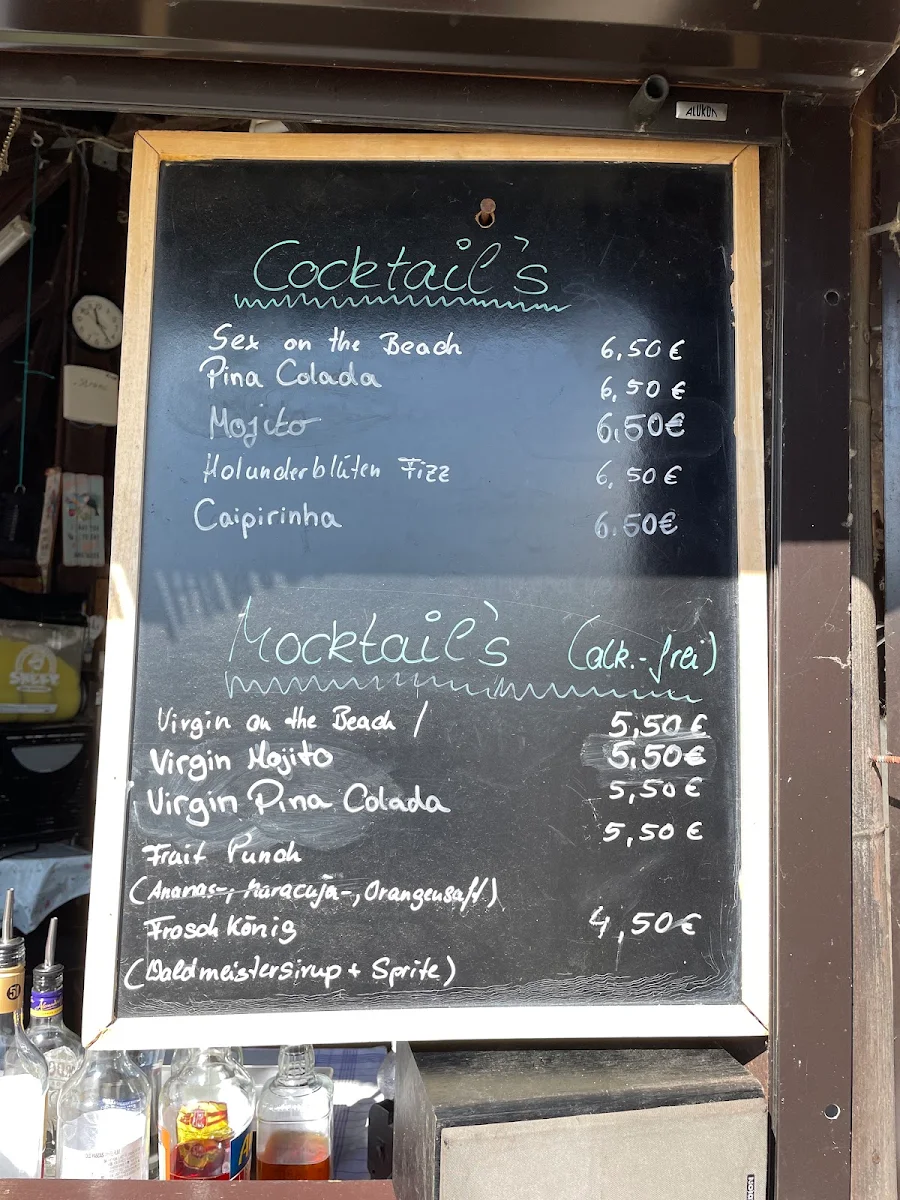 ALUKON
Cocktail's
Sex on the Beach 6,50 €
Pina Colada 6,50 €
Mojito 6,50€
Holunderblüten Fizz 6,50 €
Caipirinha 6.50€
Mocktail's (alk.-frei)
Virgin on the Beach / 5,50 €
Virgin Mojito 5,50€
Virgin Pina Colada 5,50 €
Fruit Punch 5,50 €
(Ananas-, Maracuja-, Orangensaft)
Froschkönig 4,50€
(Waldmeistersirup + Sprite)